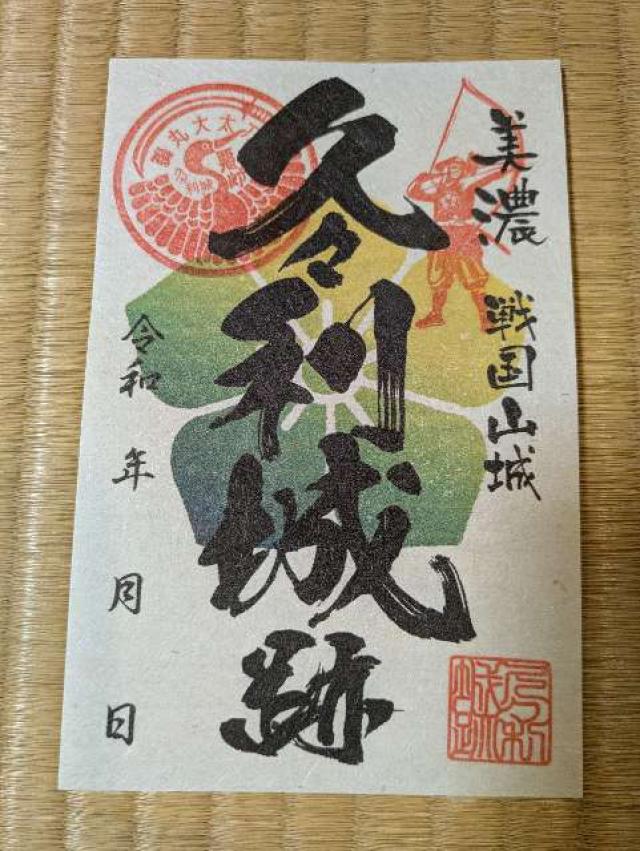 美濃 戦国山城
久々利城跡
令和 年 月 日
久々利城跡